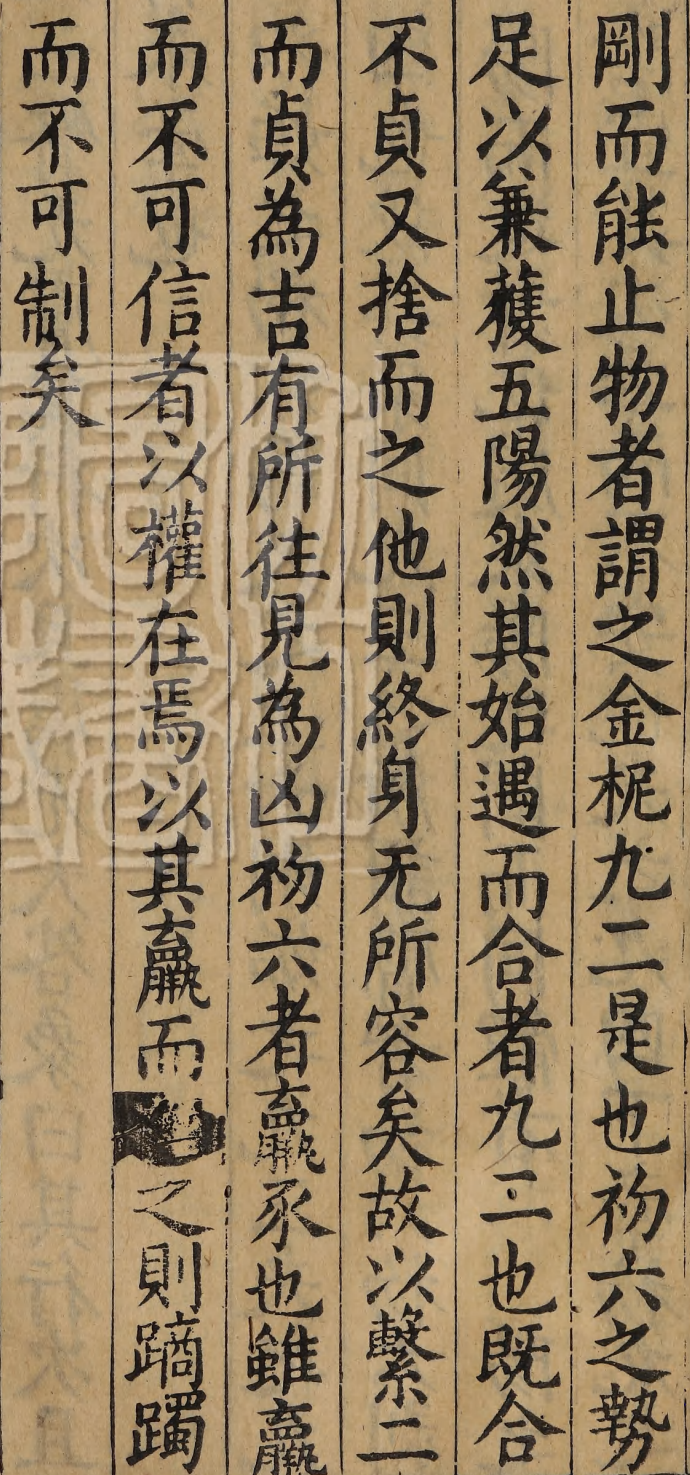 剛而能止物者謂之金柅九二是也初六之勢
足以兼獲五陽然其始遇而合者九二也既合
不貞又捨而之他則終身无所容矣故以繫二
而貞為吉有所往見為凶初六者羸豕也雖羸
而不可信者以權在焉以其羸而之則蹢躅
而不可制矣